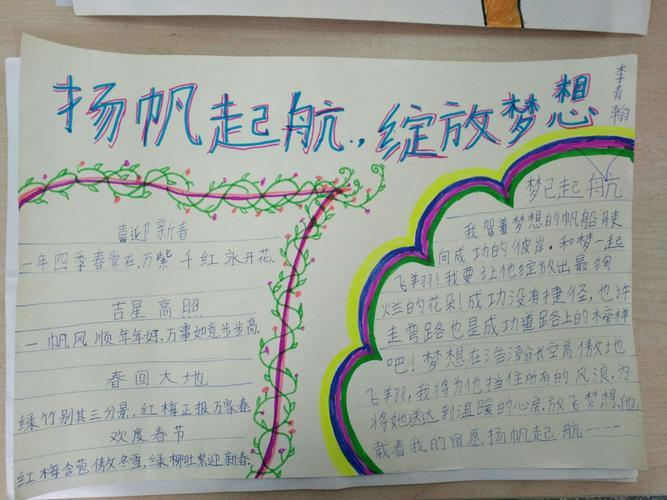 扬帆起航,绽放梦想
李青翰
喜迎新春
一年四季春常在,万紫千红永开花.
吉星高照
一帆风顺年年好,万事如意步步高.
春回大地
绿竹别其三分景,红梅正报万家春.
欢度春节
红梅含苞傲冬雪,绿柳吐紫迎新春.
梦已起航
我驾着梦想的帆船驶
向成功的彼岸,和梦一起
飞翔!我要让他绽放出最绚
烂的花朵!成功没有捷径,也许
走弯路也是成功道路上的木旁样
吧!梦想在浩瀚长空高傲地
飞翔,我将为他挡住所有的风浪,为
将她送达到温暖的心房,放飞梦想,他
载着我的宿愿扬帆起航-----